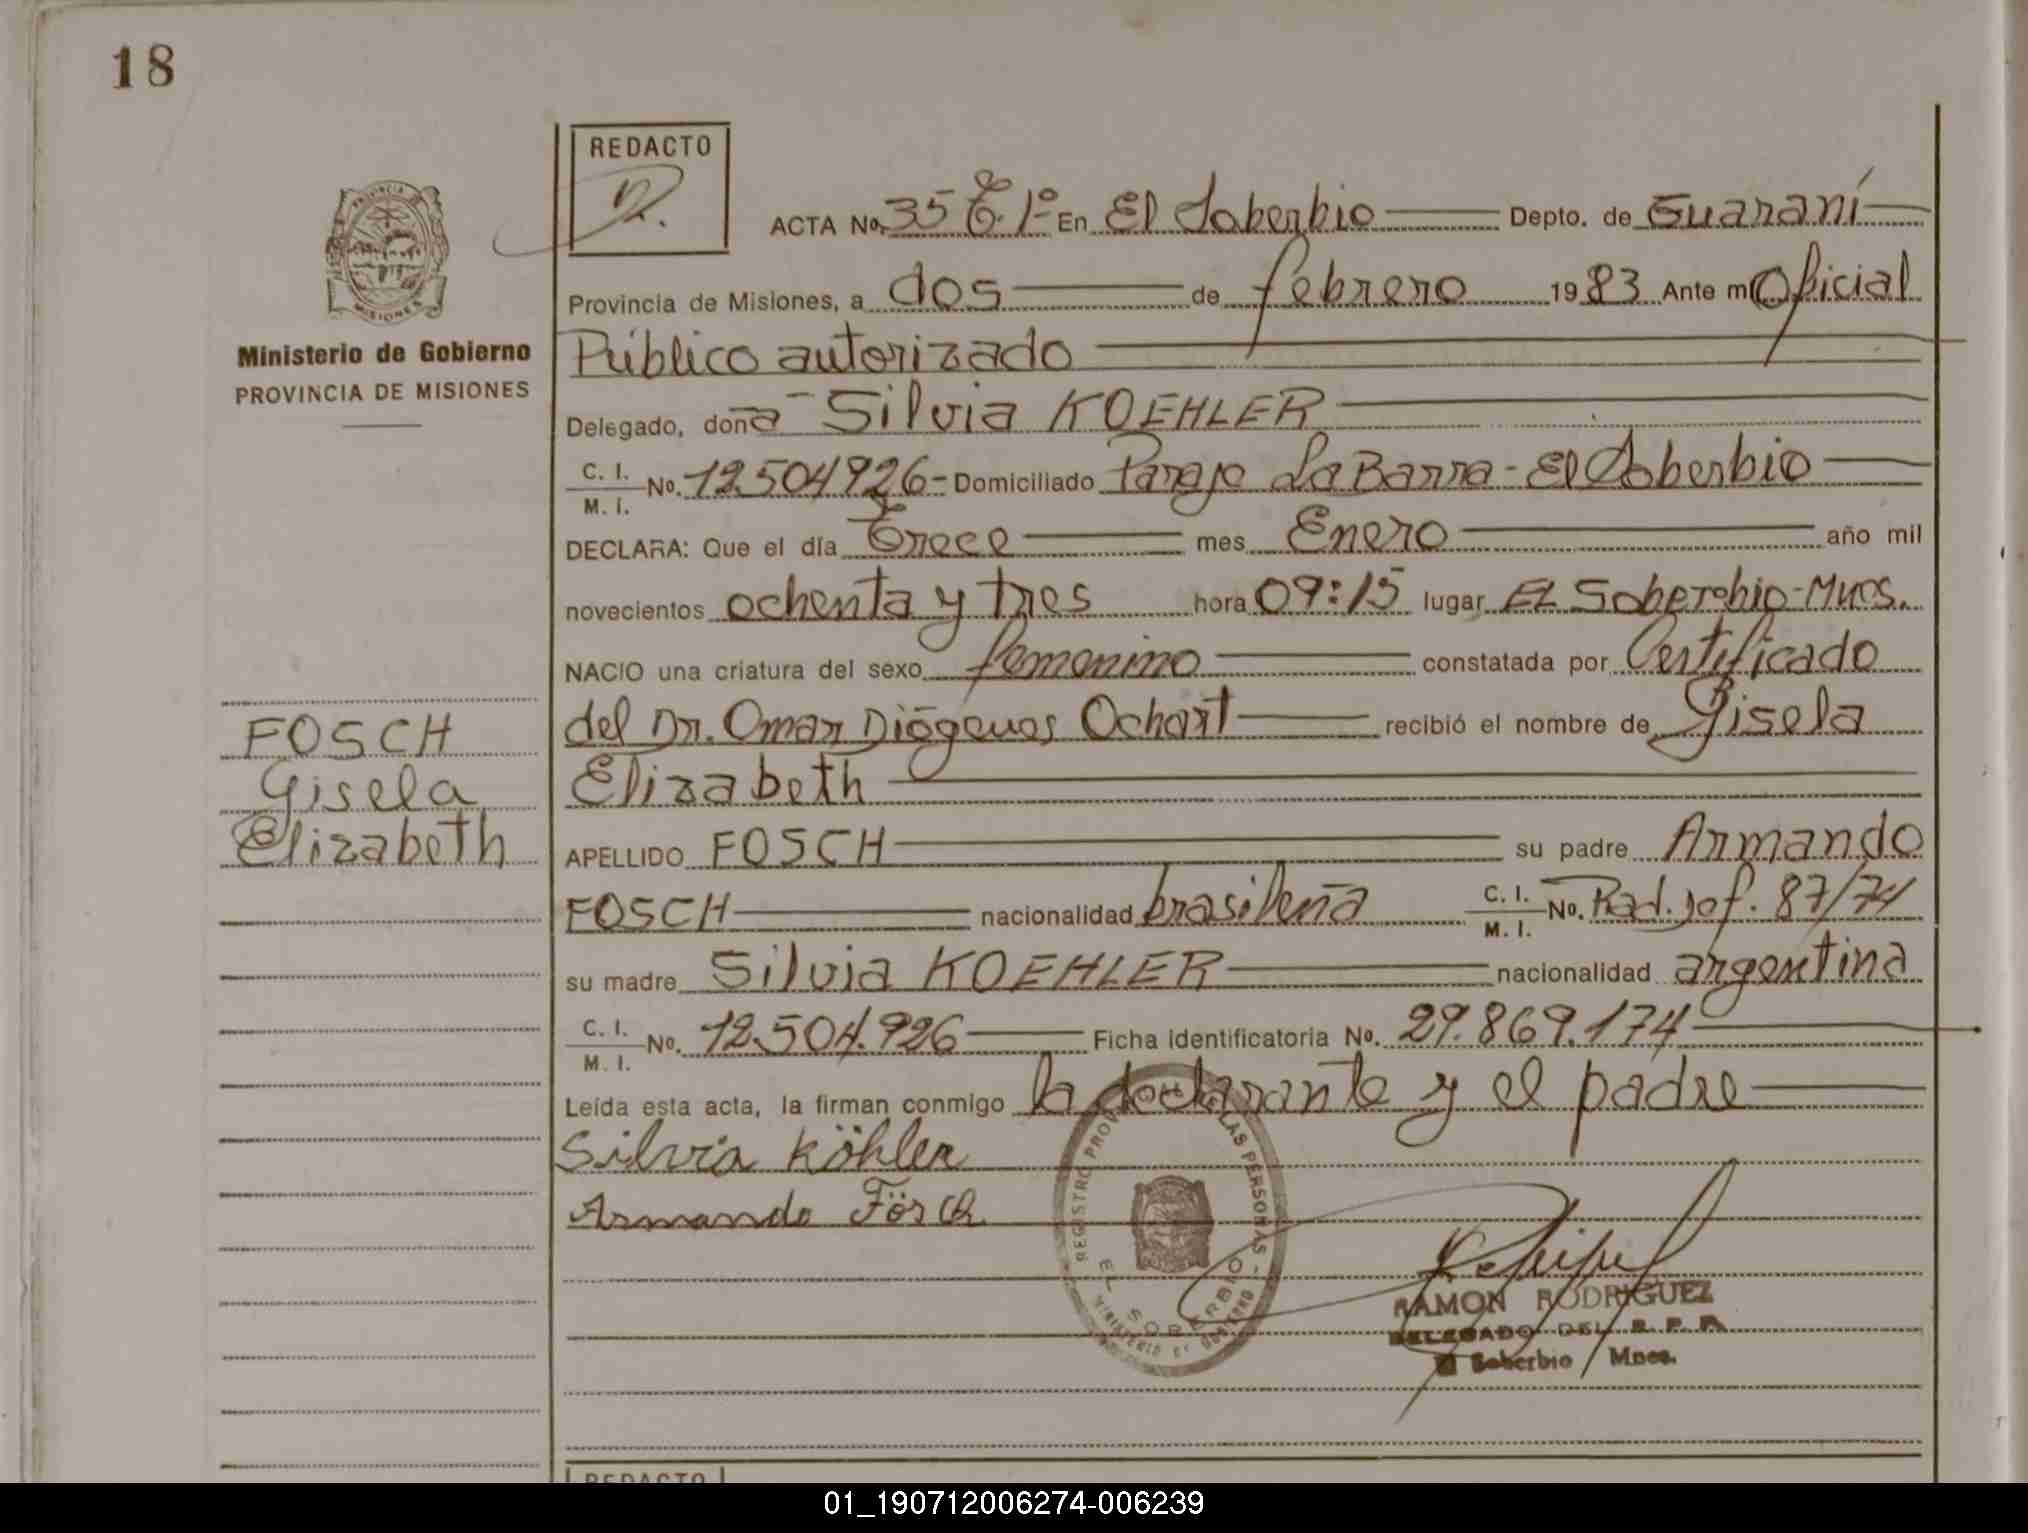 18
REDACTO
PROVINCIA DE
MISIONES
Ministerio de Gobierno
PROVINCIA DE MISIONES
ACTA No. 35 T. 1º En El Soberbio Depto. de Guaraní
Provincia de Misiones, a dos de febrero 1983 Ante mi Oficial
Público autorizado
Delegado, doña Silvia KOEHLER
C. I.
M. I. No. 12.504926- Domiciliado Paraje La Barra - El Soberbio
DECLARA: Que el día Trece mes Enero año mil
novecientos ochenta y tres hora 09:15 lugar EL Soberbio-Mnes.
NACIO una criatura del sexo femenino constatada por Certificado
del Dr. Omar Diógenes Ochart recibió el nombre de Gisela
Elizabeth
FOSCH
Gisela
Elizabeth
APELLIDO FOSCH su padre Armando
FOSCH nacionalidad brasileña C. I.
M. I. No. Rad. Jef. 87/74
su madre Silvia KOEHLER nacionalidad argentina
C. I.
M. I. No. 12.504.926 Ficha identificatoria No. 29.869.174
Leída esta acta, la firman conmigo la declarante y el padre
Silvia Köhler
Armando Fösch
REGISTRO PROVINCIAL DE LAS PERSONAS
EL SOBERBIO
MINISTERIO DE GOBIERNO
RAMON RODRIGUEZ
DELEGADO DEL R. P. P.
El Soberbio Mnes.
REDACTO
01_190712006274-006239